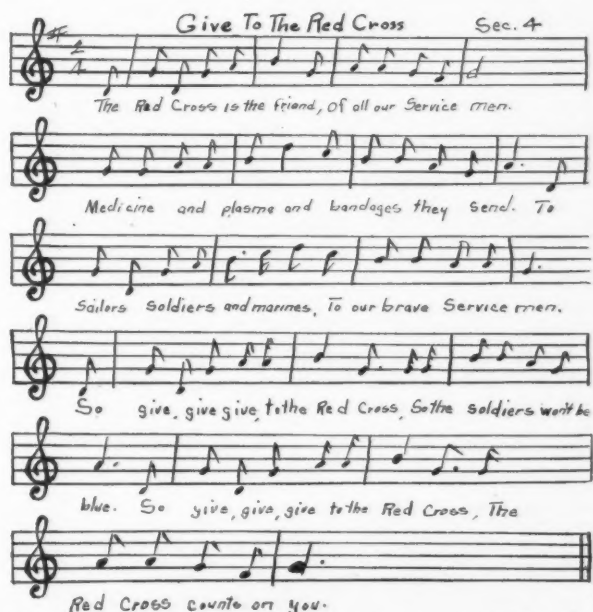 Give To The Red Cross Sec. 4
2
4
The Red Cross is the friend, of all our Service men.
Medicine and plasma and bandages they send. To
Sailors Soldiers and marines, To our brave Service men.
So give, give give, to the Red Cross, So the soldiers won't be
blue. So give, give, give to the Red Cross, The
Red Cross counts on you.